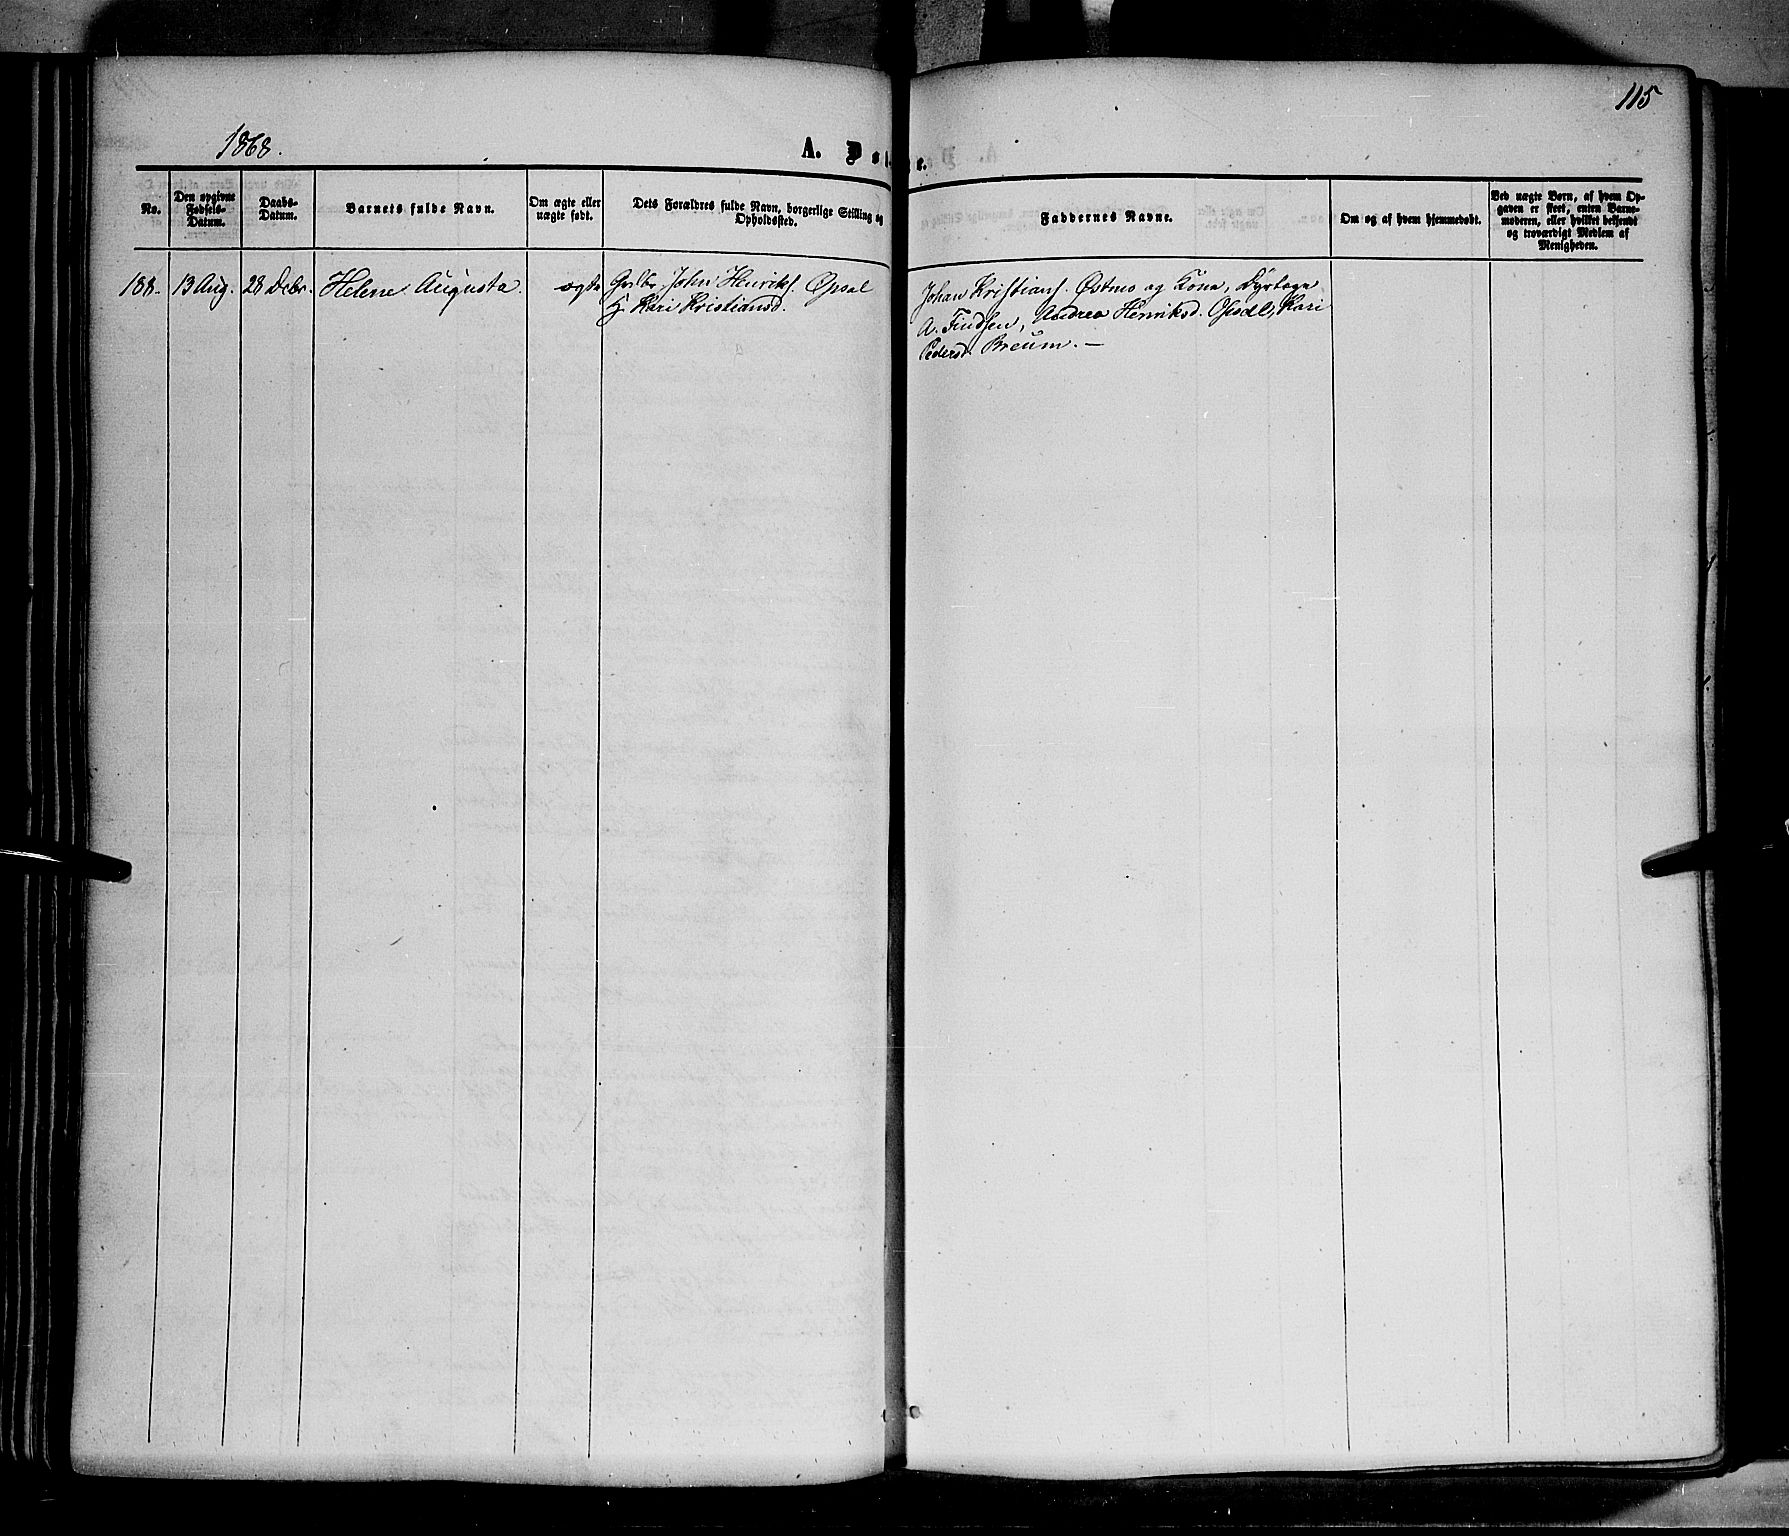 115
1868.
A. Døbte.
No.
Den opgivne
Fødsels-
Datum.
Daabs-
Datum.
Barnets fulde Navn.
Om ægte eller
uægte født.
Dets Forældres fulde Navn, borgerlige Stilling og
Opholdssted.
Faddernes Navne.
Om og af hvem hjemmedøbt.
Ved uægte Børn, af hvem Op-
gaven er skeet, enten Barne-
moderen, eller hvilket bekjendt
og troværdigt Medlem af
Menigheden.
188. 13 Aug. 28 Debr. Helene Augusta. ægte Grdbr. John Henriks. Øpsal
H. Kari Kristiansd.
Johan Kristians. Østmo og Kone, Dyrlæge
A. Findsen, Andrea Henriksd. Opsal, Kari
Pedersd. Breum. —